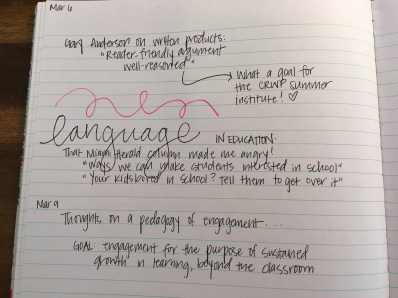 Mar 6
Gary Anderson on written products:
"Reader-friendly argument
well-reasoned"
What a goal for
the CRWP summer
institute! ♡
new
language IN EDUCATION:
That Miami Herald column made me angry!
"Ways we can make students interested in school"
"Your kids bored in school? Tell them to get over it"
Mar 9
Thoughts on a pedagogy of engagement...
GOAL engagement for the purpose of sustained
growth in learning, beyond the classroom